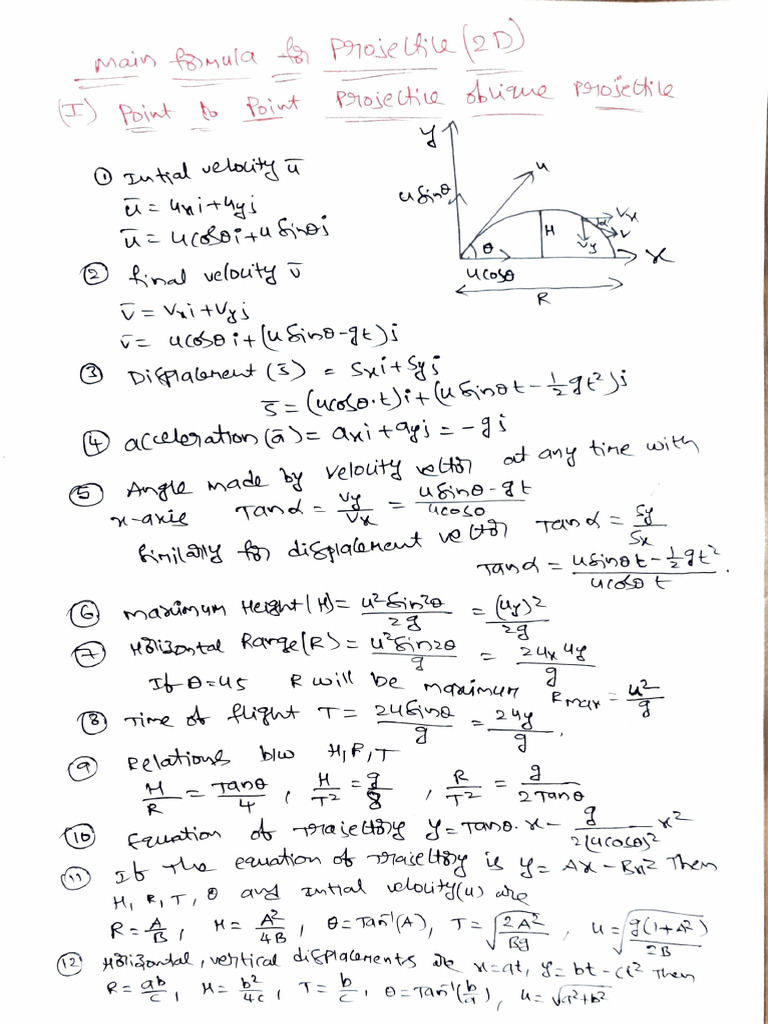 Main formula for Projectile (2D)
(I) Point to Point Projectile oblique projectile
① Initial velocity ū
ū = uxi + uyj
ū = ucosθi + usinθj
② final velocity v̄
v̄ = Vxi + Vyj
v̄ = ucosθi + (usinθ - gt)j
y
u
usinθ
θ
ucosθ
H
α
Vx
V
Vy
x
R
③ Displacement (s̄) = Sxi + Syj
s̄ = (ucosθ·t)i + (usinθt - 1/2 gt²)j
④ acceleration (ā) = axi + ayj = -gj
⑤ Angle made by velocity vector at any time with
x-axis Tanα = Vy/Vx = (usinθ - gt)/(ucosθ)
Similarly for displacement vector Tanα = Sy/Sx
Tanα = (usinθt - 1/2 gt²)/(ucosθt).
⑥ Maximum Height (H) = u²sin²θ/2g = (uy)²/2g
⑦ Horizontal Range (R) = u²sin2θ/g = 2uxuy/g
If θ = 45 R will be maximum Rmax = u²/g
⑧ Time of flight T = 2usinθ/g = 2uy/g.
⑨ Relations b/w H, R, T
H/R = Tanθ/4, H/T² = g/8, R/T² = g/2Tanθ
⑩ Equation of Trajectory y = Tanθ.x - g/2(ucosθ)² x²
⑪ If the equation of Trajectory is y = Ax - Bx² Then
H, R, T, θ and initial velocity (u) are
R = A/B, H = A²/4B, θ = Tan⁻¹(A), T = √(2A²/Bg), u = √(g(1+A²)/2B)
⑫ Horizontal, vertical displacements are x = at, y = bt - ct² Then
R = ab/c, H = b²/4c, T = b/c, θ = Tan⁻¹(b/a), u = √(a²+b²)